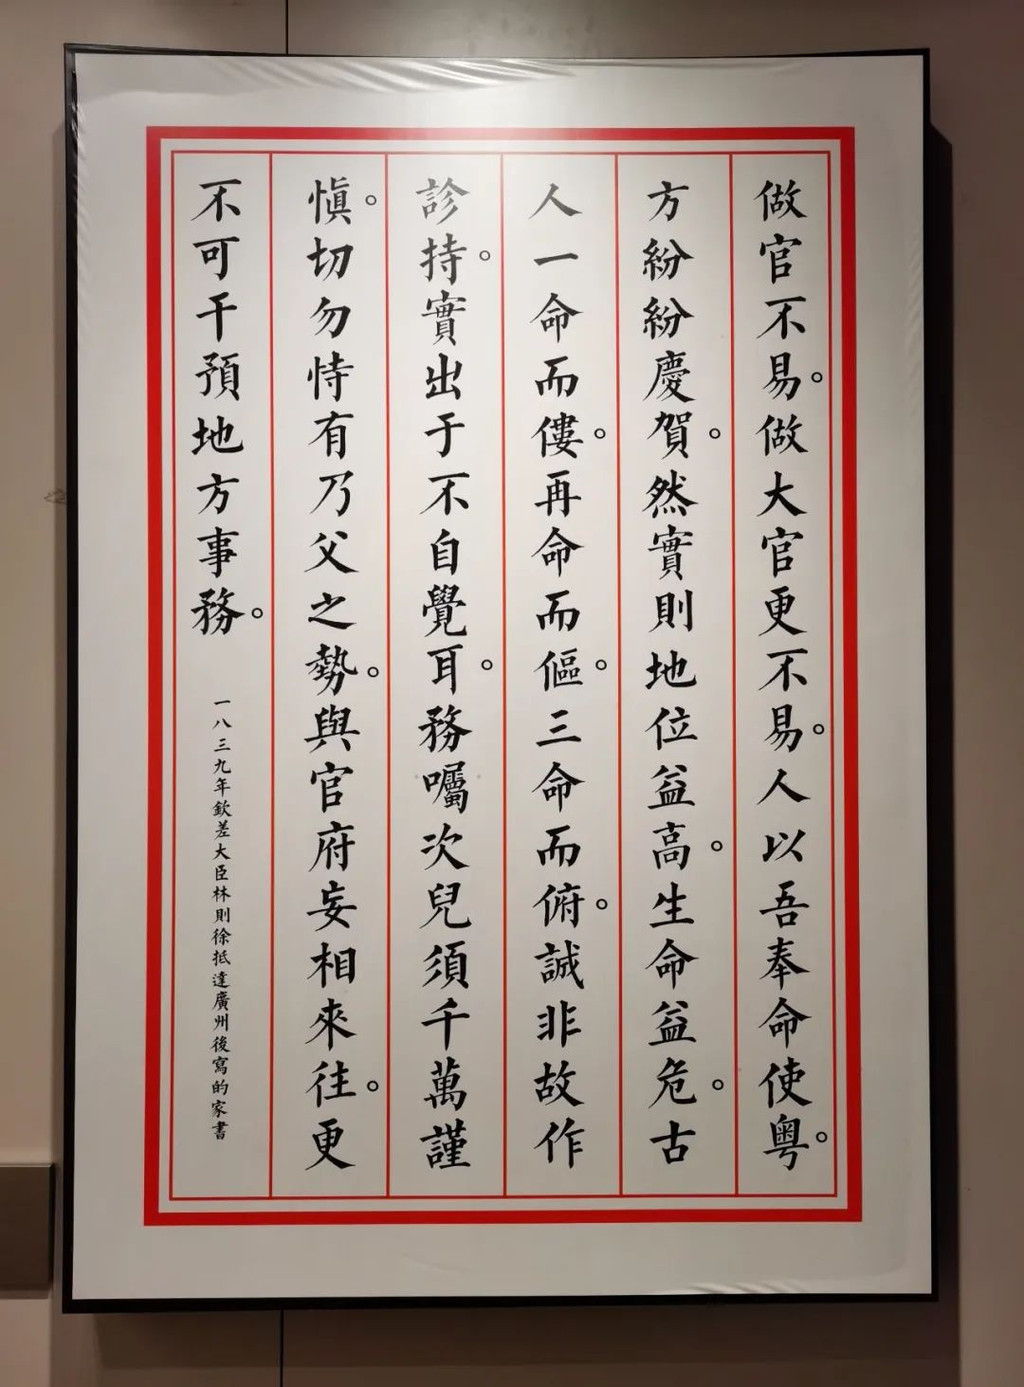 做官不易。做大官更不易。人以吾奉命使粤。
方紛紛慶賀。然實則地位益高。生命益危。古
人一命而僂。再命而傴。三命而俯。誠非故作
診持。實出于不自覺耳。務囑次兒須千萬謹
慎。切勿恃有乃父之勢。與官府妄相來往。更
不可干預地方事務。
一八三九年欽差大臣林則徐抵達廣州後寫的家書